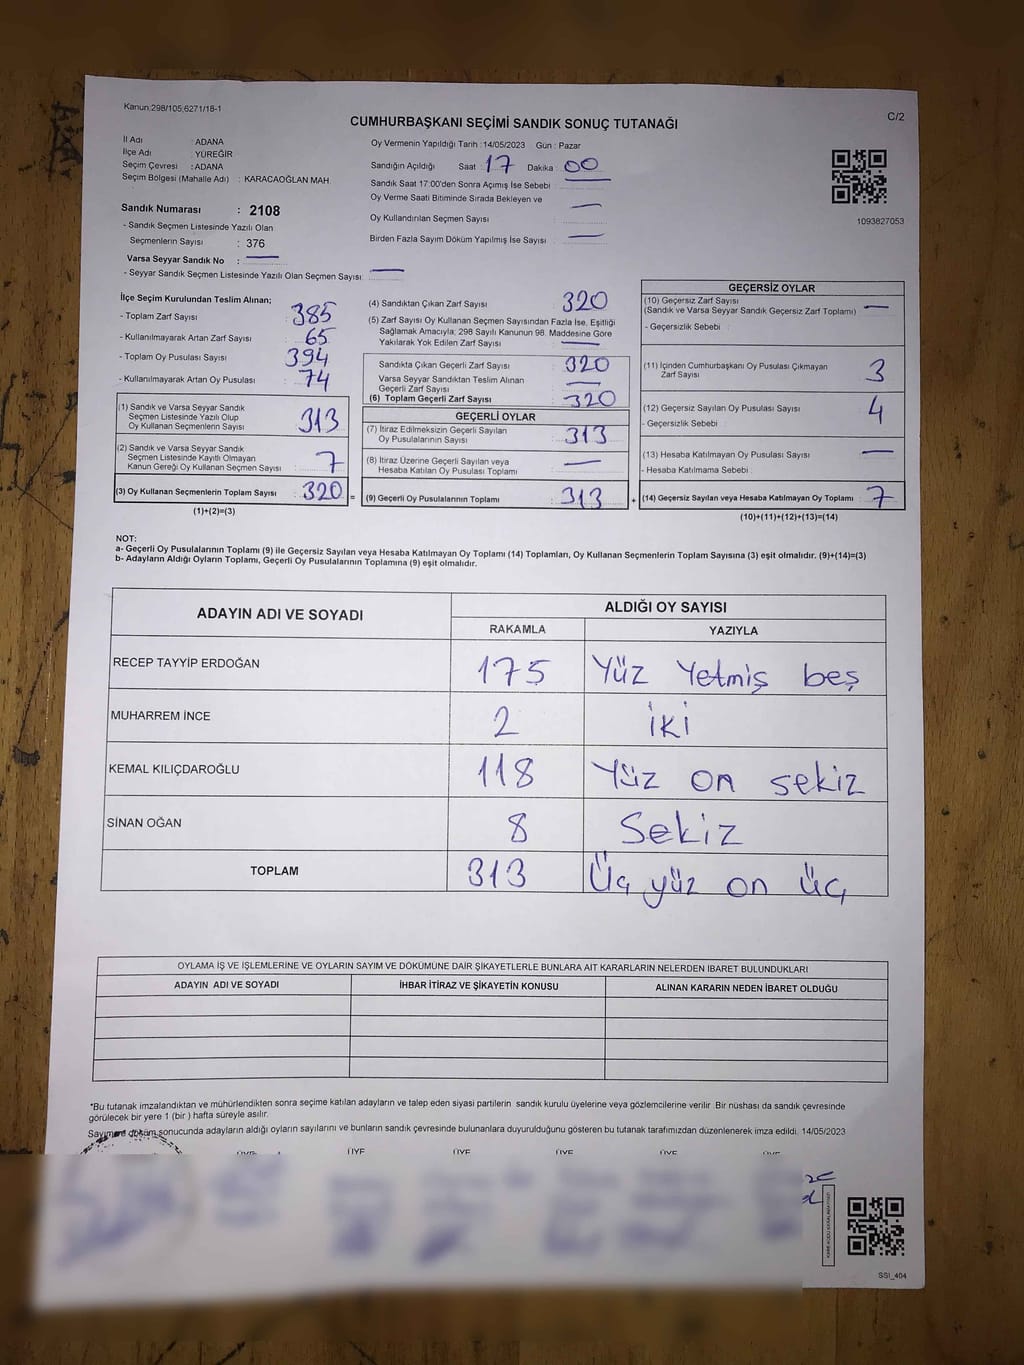 Kanun:298/105;6271/18-1
C/2
CUMHURBAŞKANI SEÇİMİ SANDIK SONUÇ TUTANAĞI
İl Adı : ADANA
İlçe Adı : YÜREĞİR
Seçim Çevresi : ADANA
Seçim Bölgesi (Mahalle Adı) : KARACAOĞLAN MAH.
Sandık Numarası : 2108
- Sandık Seçmen Listesinde Yazılı Olan
Seçmenlerin Sayısı : 376
Varsa Seyyar Sandık No : —
- Seyyar Sandık Seçmen Listesinde Yazılı Olan Seçmen Sayısı: —
Oy Vermenin Yapıldığı Tarih : 14/05/2023 Gün : Pazar
Sandığın Açıldığı Saat : 17 Dakika : 00
Sandık Saat 17:00'den Sonra Açımış İse Sebebi : —
Oy Verme Saati Bitiminde Sırada Bekleyen ve
Oy Kullandırılan Seçmen Sayısı : —
Birden Fazla Sayım Döküm Yapılmış İse Sayısı : —
1093827053
İlçe Seçim Kurulundan Teslim Alınan;
- Toplam Zarf Sayısı : 385
- Kullanılmayarak Artan Zarf Sayısı : 65
- Toplam Oy Pusulası Sayısı : 394
- Kullanılmayarak Artan Oy Pusulası : 74
(1) Sandık ve Varsa Seyyar Sandık
Seçmen Listesinde Yazılı Olup
Oy Kullanan Seçmenlerin Sayısı : 313
(2) Sandık ve Varsa Seyyar Sandık
Seçmen Listesinde Kayıtlı Olmayan
Kanun Gereği Oy Kullanan Seçmen Sayısı : 7
(3) Oy Kullanan Seçmenlerin Toplam Sayısı : 320 =
(1)+(2)=(3)
(4) Sandıktan Çıkan Zarf Sayısı : 320
(5) Zarf Sayısı Oy Kullanan Seçmen Sayısından Fazla İse, Eşitliği
Sağlamak Amacıyla; 298 Sayılı Kanunun 98. Maddesine Göre
Yakılarak Yok Edilen Zarf Sayısı : —
Sandıkta Çıkan Geçerli Zarf Sayısı : 320
Varsa Seyyar Sandıktan Teslim Alınan
Geçerli Zarf Sayısı : —
(6) Toplam Geçerli Zarf Sayısı : 320
GEÇERLİ OYLAR
(7) İtiraz Edilmeksizin Geçerli Sayılan
Oy Pusulalarının Sayısı : 313
(8) İtiraz Üzerine Geçerli Sayılan veya
Hesaba Katılan Oy Pusulası Toplamı : —
(9) Geçerli Oy Pusulalarının Toplamı : 313 +
GEÇERSİZ OYLAR
(10) Geçersiz Zarf Sayısı : —
(Sandık ve Varsa Seyyar Sandık Geçersiz Zarf Toplamı)
- Geçersizlik Sebebi :
(11) İçinden Cumhurbaşkanı Oy Pusulası Çıkmayan
Zarf Sayısı : 3
(12) Geçersiz Sayılan Oy Pusulası Sayısı : 4
- Geçersizlik Sebebi :
(13) Hesaba Katılmayan Oy Pusulası Sayısı : —
- Hesaba Katılmama Sebebi :
(14) Geçersiz Sayılan veya Hesaba Katılmayan Oy Toplamı : 7
(10)+(11)+(12)+(13)=(14)
NOT:
a- Geçerli Oy Pusulalarının Toplamı (9) ile Geçersiz Sayılan veya Hesaba Katılmayan Oy Toplamı (14) Toplamları, Oy Kullanan Seçmenlerin Toplam Sayısına (3) eşit olmalıdır. (9)+(14)=(3)
b- Adayların Aldığı Oyların Toplamı, Geçerli Oy Pusulalarının Toplamına (9) eşit olmalıdır.
ADAYIN ADI VE SOYADI ALDIĞI OY SAYISI
RAKAMLA YAZIYLA
RECEP TAYYİP ERDOĞAN 175 Yüz Yetmiş beş
MUHARREM İNCE 2 İKİ
KEMAL KILIÇDAROĞLU 118 Yüz on sekiz
SİNAN OĞAN 8 Sekiz
TOPLAM 313 Üç yüz on üç
OYLAMA İŞ VE İŞLEMLERİNE VE OYLARIN SAYIM VE DÖKÜMÜNE DAİR ŞİKAYETLERLE BUNLARA AİT KARARLARIN NELERDEN İBARET BULUNDUKLARI
ADAYIN ADI VE SOYADI İHBAR İTİRAZ VE ŞİKAYETİN KONUSU ALINAN KARARIN NEDEN İBARET OLDUĞU
*Bu tutanak imzalandıktan ve mühürlendikten sonra seçime katılan adayların ve talep eden siyasi partilerin sandık kurulu üyelerine veya gözlemcilerine verilir. Bir nüshası da sandık çevresinde
görülecek bir yere 1 (bir ) hafta süreyle asılır.
Sayım ve döküm sonucunda adayların aldığı oyların sayılarını ve bunların sandık çevresinde bulunanlara duyurulduğunu gösteren bu tutanak tarafımızdan düzenlenerek imza edildi. 14/05/2023
ÜYE ÜYE ÜYE ÜYE
SSI_404